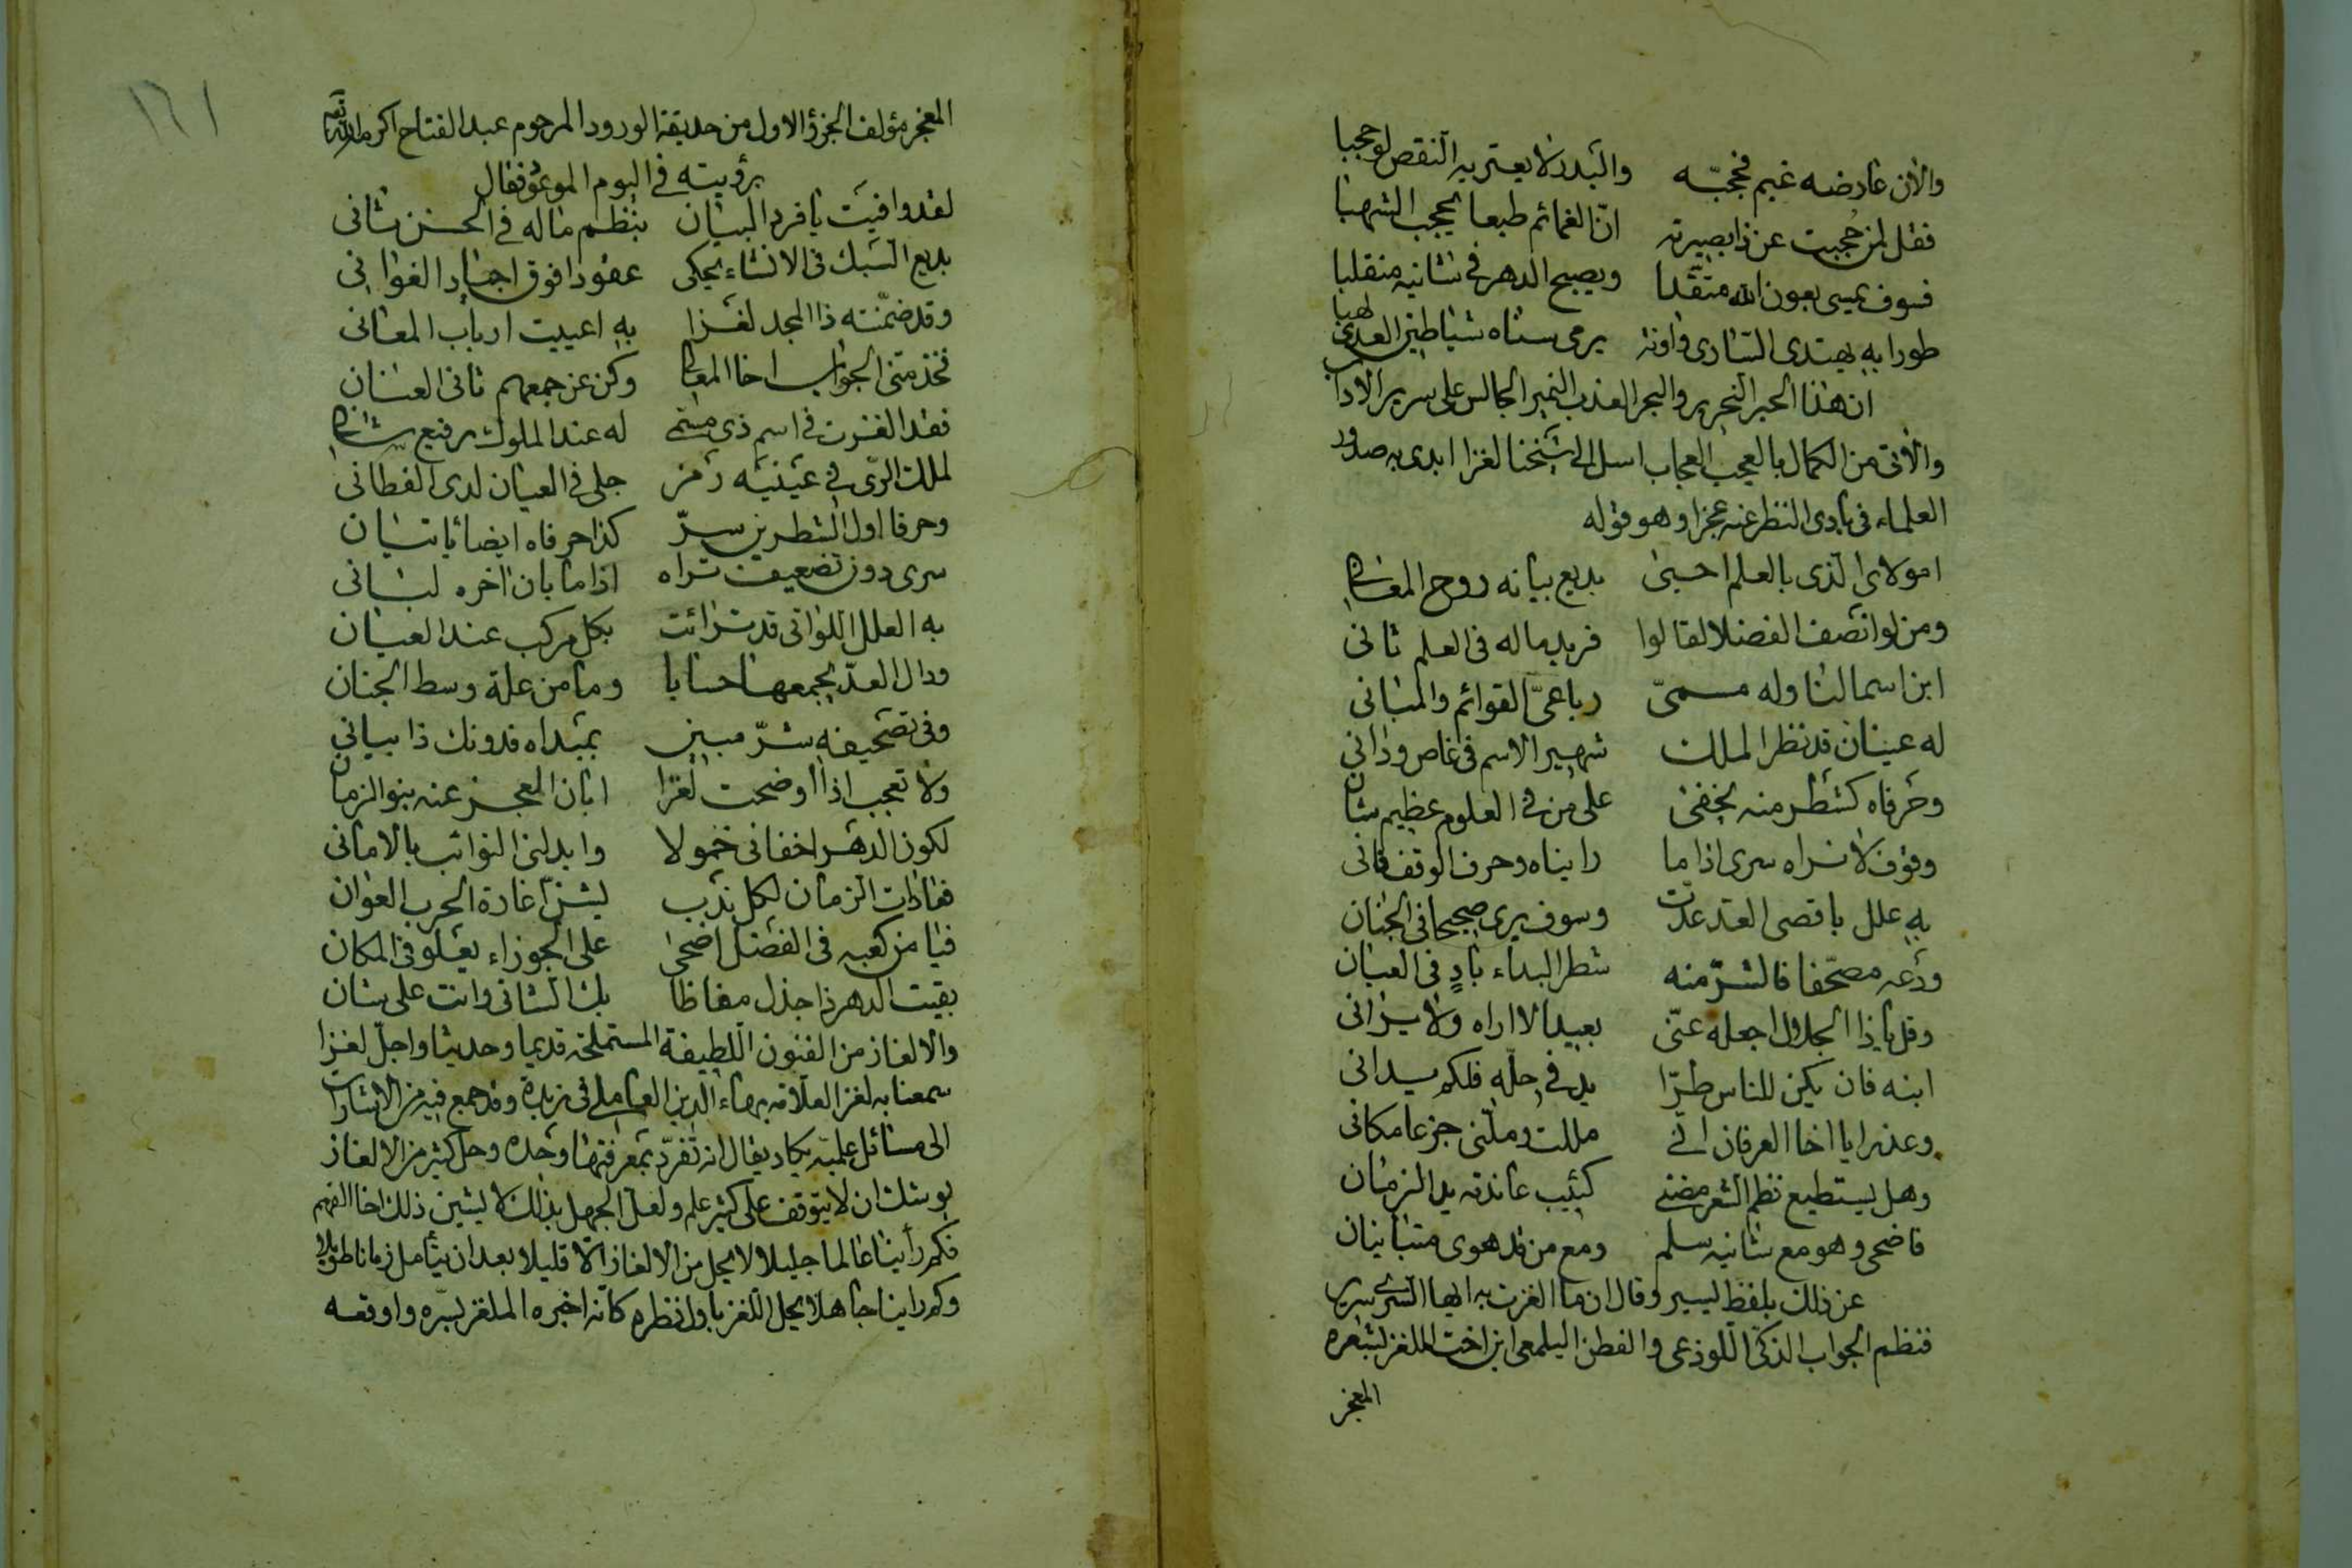 والان عارضه غيم فحجبّه والبدر لا يعتريه النقص لو حجبا
فقل لمن حُجبت عن ذا بصيرته انّ الغمائم طبعا تحجب الشهبا
فسوف يمسى بعون الله متقدا ويصبح الدهر فى شانيه منقلبا
طورا به يهتدى السّارى واونة يرمى سناه شياطين العدى لهبا
ان هذا الحبر النحرير والبحر العذب النمير الجالس على سرير الاداب
والاتى من الكمال بالعجب العجاب ارسل الى شيخنا لغزا ابدى به صدور
العلماء فى بادى النظر عنه عجزا وهو قوله
امولاى الذى بالعلم احيىٰ بديع بيانه روح المعانى
ومن لو انصف الفضلا لقالوا فريد ماله فى العلم ثانى
ابن اسما لنا وله مسمىّ رباعىّ القوائم والمبانى
له عينان قد نظر الملك شهير الاسم فى قاص ودانى
وحرفاه كشطر منه يخفىٰ على من فى العلوم عظيم شان
وقوف لا نراه سرى اذا ما رايناه وحرف الوقف فانى
به علل باقصى العد عدّت وسوف يرى صحيحا فى الجنان
ودعه مصحّفا فالشرّ منه شطر البداء بادٍ فى العيان
وقل يا ذا الجلال اجعله عنّى بعيدا لا اراه ولا يرانى
ابنه فان يكن للناس طرّا يد فى حلّه فلكم يدانى
وعذرا يا اخا العرفان انّى مللت وملّنى جزعا مكانى
وهل يستطيع نظم الشعر مضنى كئيب عاندته يد الزمان
فاضحى وهو مع شانيه سلم ومع من قد هوى متباينان
عن ذلك بلفظ ليسير وقال ان ما الغزت به ايها السرى سرير
فنظم الجواب الذكىّ اللوذعى والفطن اليلمعى ابن اخت الملغز لشعره
المعجز
١٦١
المعجز مؤلف الجزؤ الاول من حديقة الورود المرحوم عبد الفتاح اكرمه الله تعالى
برؤيته فى اليوم الموعود فقال
لقد وافيت يا فرد البيان بنظم ماله فى الحسن ثانى
بديع السبك فى الانشاء يحكى عقودا فوق اجياد الغوانى
وقد ضمّنته ذا المجد لغزا به اعييت ارباب المعانى
فخذ منّى الجواب اخا المعالى وكن عن جمعهم ثانى العنان
فقد الغزت فى اسم ذى مسمّى له عند الملوك رفيع شان
لملك الرّى فى عينيه رمز جلى فى العيان لدى الفطانى
وحرفا اول الشطرين سرّ كذا حرفاه ايضا ياتيان
سرى دون تضعيف تراه اذا ما بان اخره لبانى
به العلل اللواتى قد ترائت بكل مركب عند العيان
ودال العدّ يجمعها حسابا وما من علة وسط الجنان
وفى تصحيفه شرّ مبين بمبداه فدونك ذا بيانى
ولا تعجب اذا اوضحت لغزا ابان العجز عنه بنو الزمان
لكون الدهر اخفانى خمولا وابدلنى النوائب بالامانى
فعادات الزمان لكل ندب يشنّ اغارة الحرب العوان
فيا من كعبه فى الفضل اضحى على الجوزاء يعلو فى المكان
بقيت الدهر ذا جذل مغاظا بك الشانى وانت على شان
والالغاز من الفنون اللطيفة المستملحة قديما وحديثا واجلّ لغزا
سمعنا به لغز العلّامة بهاء الدين العاملى فى زبدة وقد جمع فيه من الاشارات
الى مسائل علمية يكاد يقال انه تفرّد بمعرفتها وحده وحل كثير من الالغاز
يوشك ان لا يتوقف على كثير علم ولعلّ الجهل بذلك لا يشين ذلك اخا الفهم
فكم رأينا عالما جليلا لا يحل من الالغاز الّا قليلا بعد ان يتأمل زمانا طويلا
وكم راينا جاهلا يحل اللغز باول نظره كانه اخبره الملغز بسرّه واوقفه